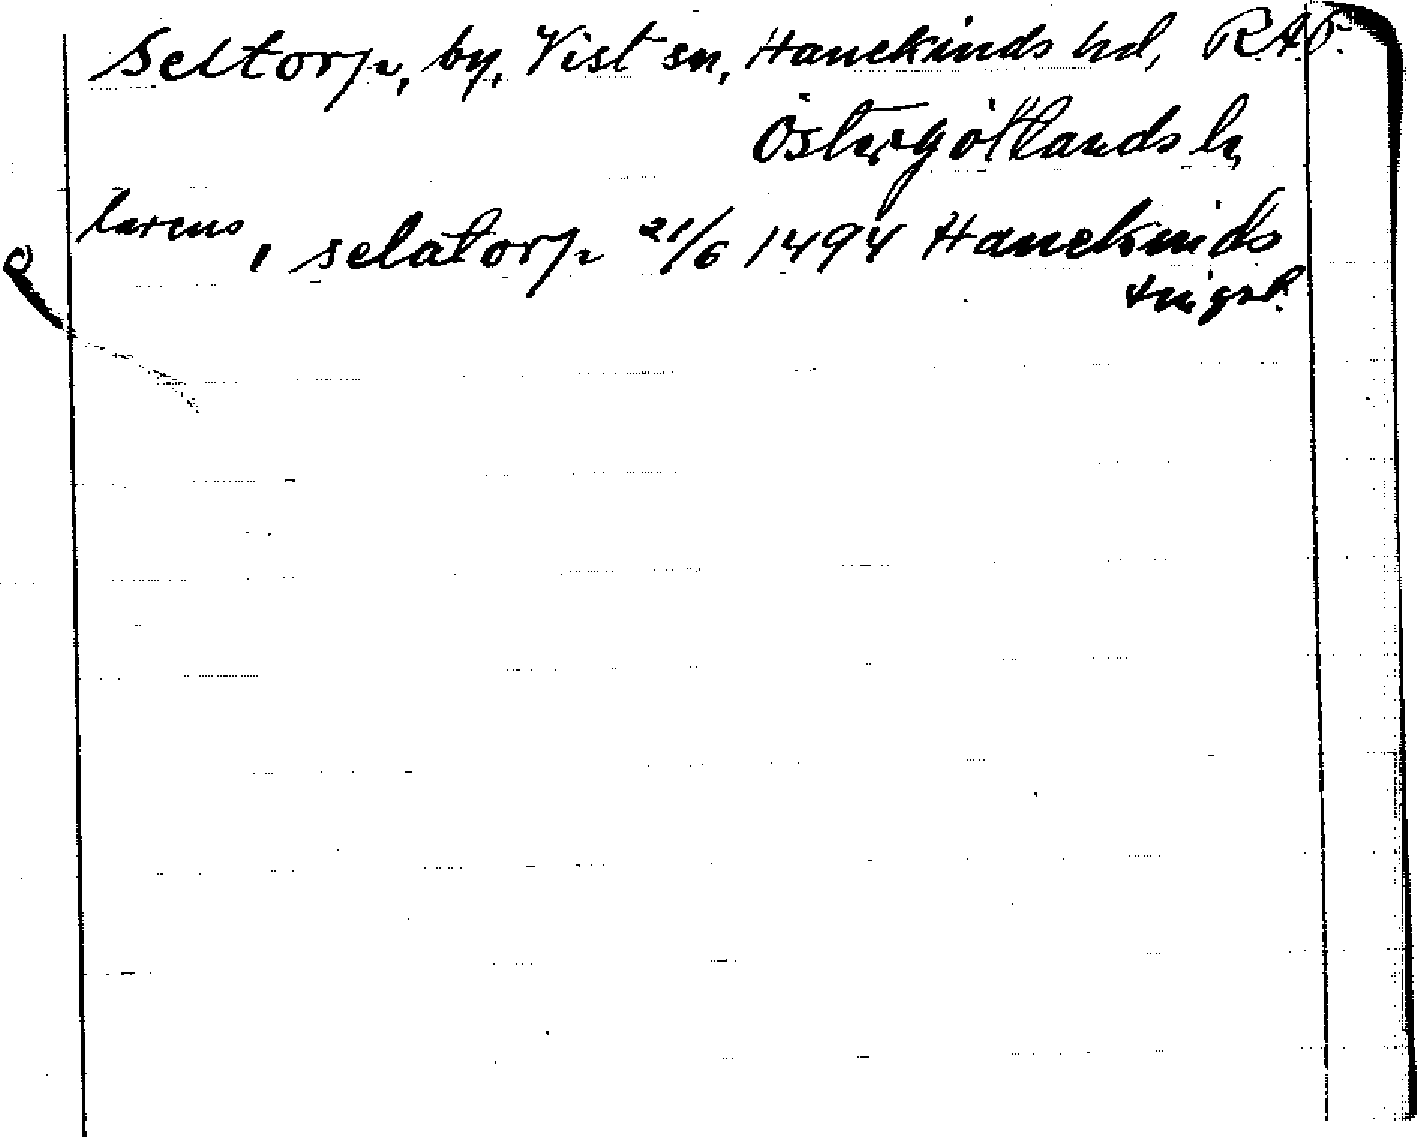 Seltorp, by, Vist sn, Hanekinds hd, RAP.
Östergötlands l.
larens, selatorp 21/6 1494 Hanekinds
tingsl.